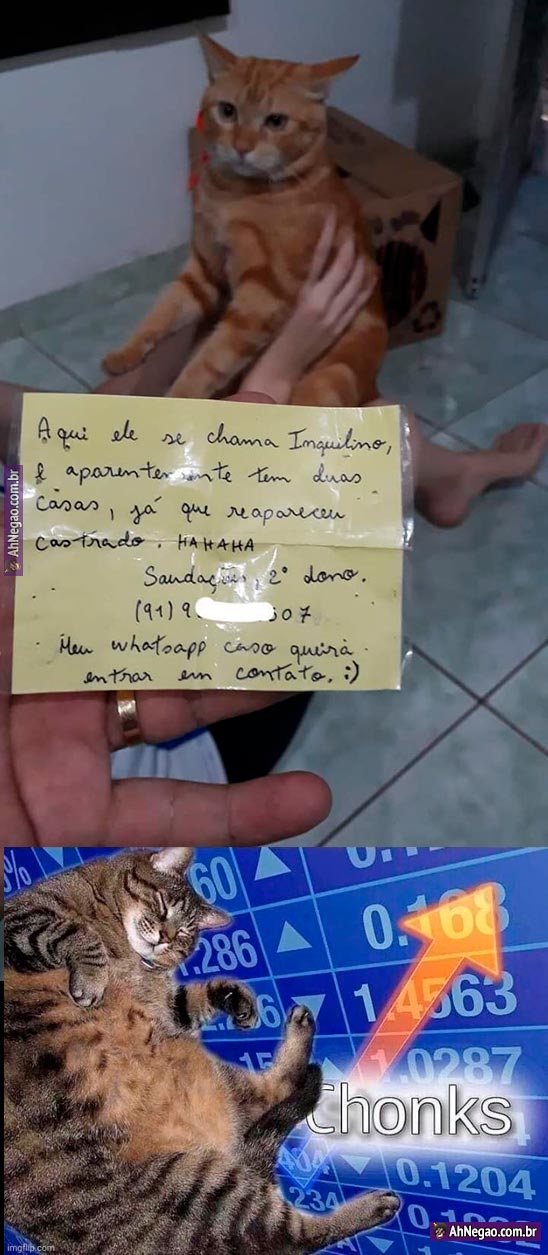 Aqui ele se chama Inquilino,
E aparentemente tem duas
casas, já que reapareceu
castrado. HAHAHA
Saudações, 2º dono.
(91) 9 607
Meu whatsapp caso queira
entrar em contato. :)
AhNegao.com.br
%
60
0.168
1.286
1.4563
1.0287
Chonks
0.1204
234
AhNegao.com.br
imgflip.com